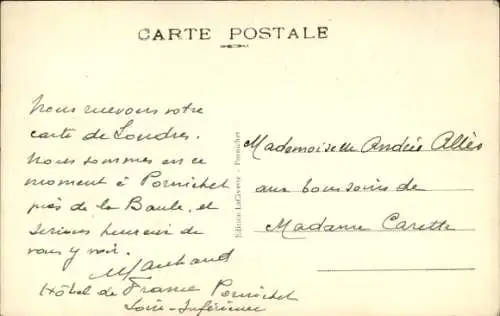 CARTE POSTALE
Nous recevons votre
carte de Londres.
Nous sommes en ce
moment à Pornichet
près de la Baule, et
serions heureux de
vous y voir.
Hôtel de France Pornichet
Loire-Inférieure
Pornichet
Mademoiselle Andrée Allès
aux bons soins de
Madame Carette